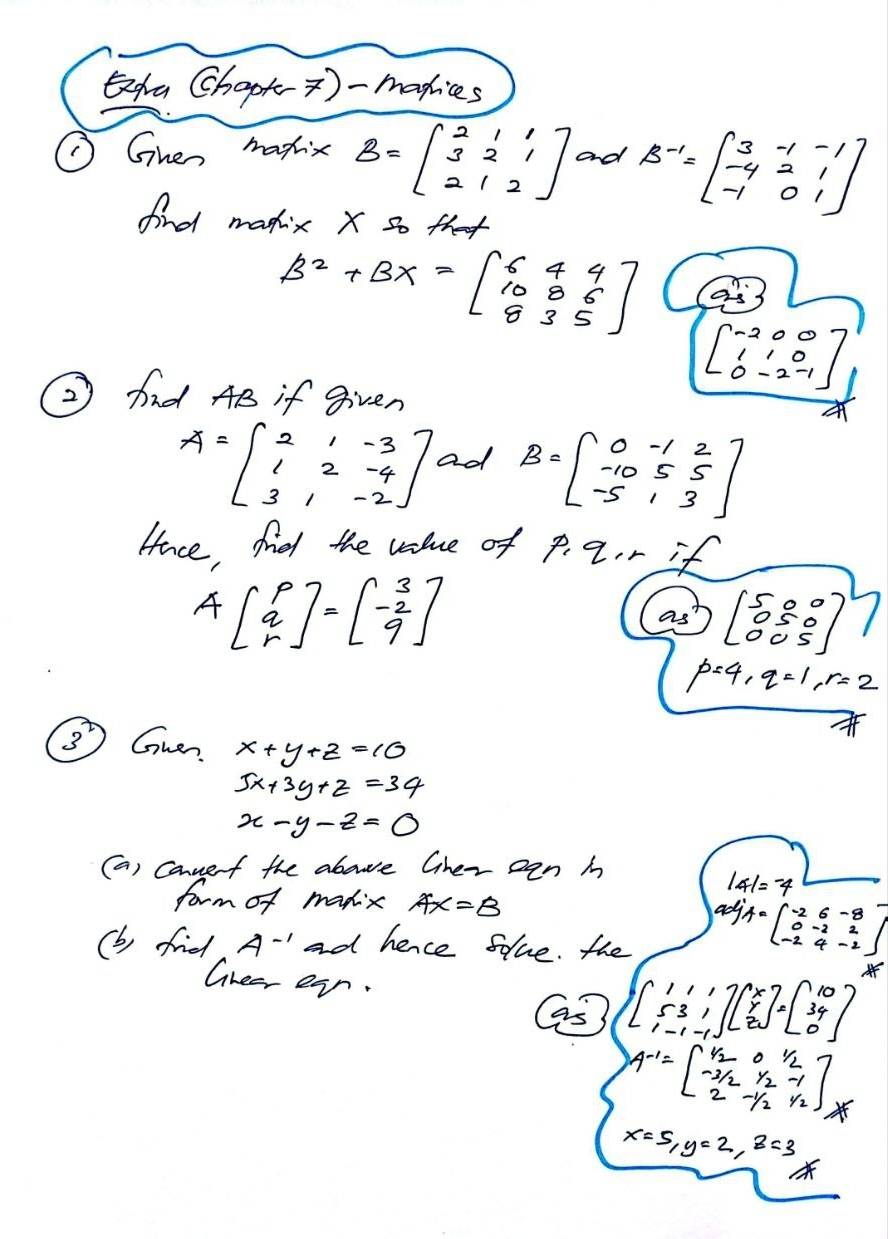 Extra (Chapter 7) - Matrices
① Given matrix B = [2 1 1; 3 2 1; 2 1 2] and B⁻¹ = [3 -1 -1; -4 2 1; -1 0 1]
find matrix X so that
B² + BX = [6 4 4; 10 8 6; 8 3 5]
ans
[-2 0 0; 1 1 0; 0 -2 -1]
② find AB if given
A = [2 1 -3; 1 2 -4; 3 1 -2] and B = [0 -1 2; -10 5 5; -5 1 3]
Hence, find the value of p, q, r if
A [p; q; r] = [3; -2; 9]
ans [5 0 0; 0 5 0; 0 0 5]
p=4, q=1, r=2
③ Given x + y + z = 10
5x + 3y + z = 34
x - y - z = 0
(a) convert the above linear eqn in
form of matrix AX = B
(b) find A⁻¹ and hence solve. the
linear eqn.
|A| = -4
adj A = [-2 6 -8; 0 -2 2; -2 4 -2]
ans [1 1 1; 5 3 1; 1 -1 -1] [x; y; z] = [10; 34; 0]
A⁻¹ = [1/2 0 1/2; -3/2 1/2 -1; 2 -1/2 1/2]
x=5, y=2, z=3